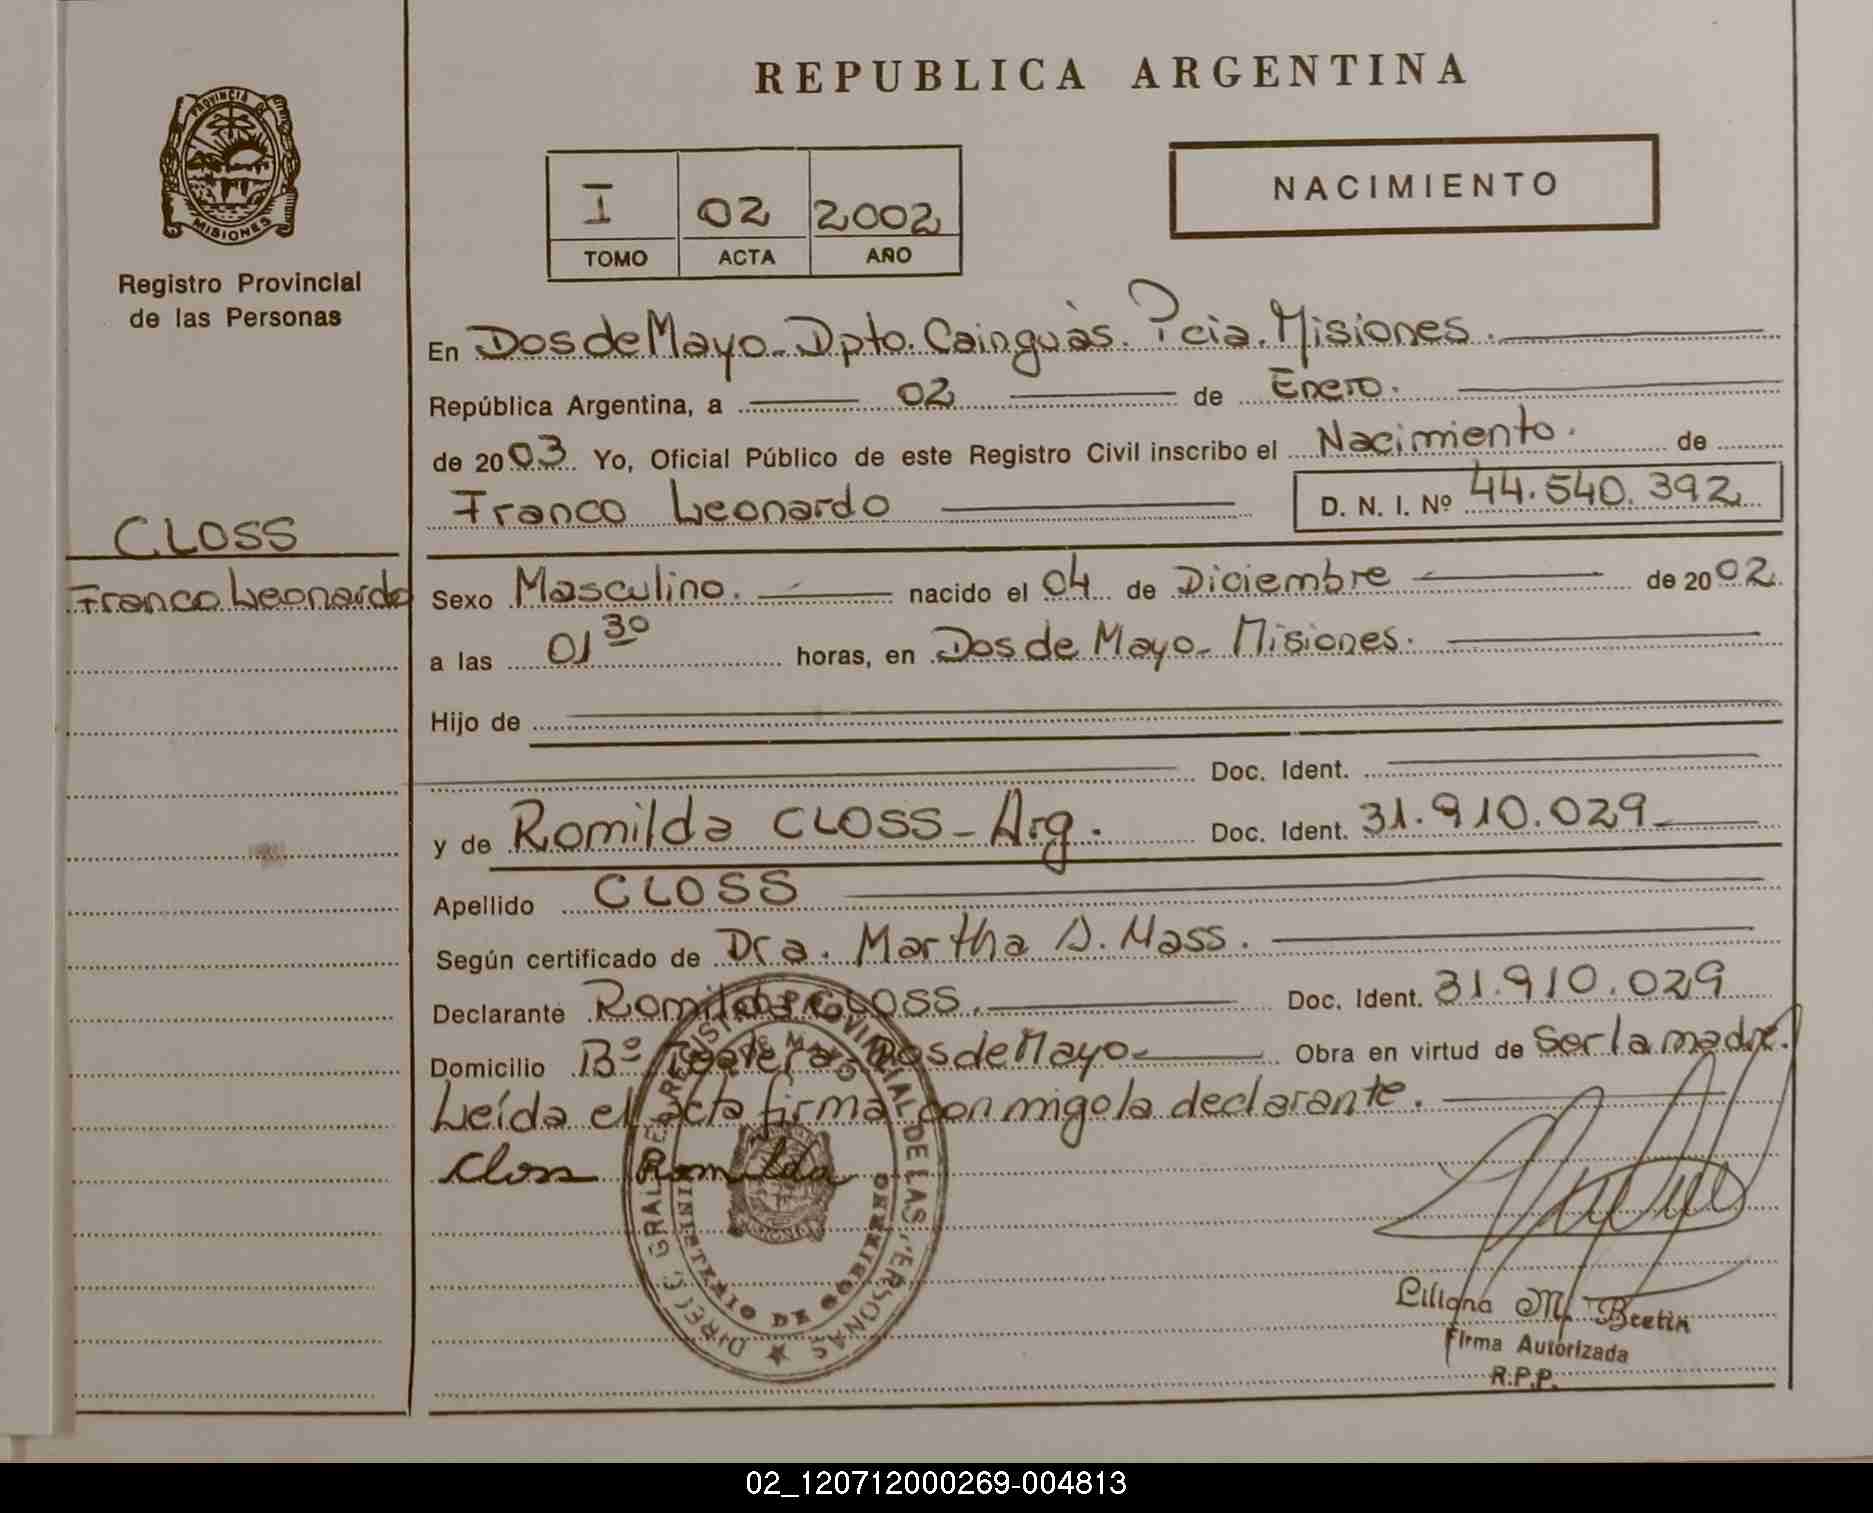 REPUBLICA ARGENTINA
PROVINCIA DE
MISIONES
Registro Provincial
de las Personas
I 02 2002
TOMO ACTA AÑO
NACIMIENTO
En Dos de Mayo - Dpto. Cainguàs. Pcia. Misiones.
República Argentina, a 02 de Enero.
de 2003 Yo, Oficial Público de este Registro Civil inscribo el Nacimiento. de
Franco Leonardo D. N. I. Nº 44.540.392
CLOSS
Franco Leonardo
Sexo Masculino. nacido el 04 de Diciembre de 2002
a las 01 30 horas, en Dos de Mayo - Misiones.
Hijo de
Doc. Ident.
y de Romilda CLOSS - Arg. Doc. Ident. 31.910.029
Apellido CLOSS
Según certificado de Dra. Martha D. Mass.
Declarante Romilda CLOSS. Doc. Ident. 31.910.029
Domicilio Bº Dos de Mayo - Obra en virtud de Ser la madre.
Leída el acta firma con migo la declarante.
Closs Romilda
DIREC. GRAL. DEL REGISTRO PROVINCIAL DE LAS PERSONAS
MINISTERIO DE GOBIERNO
Liliana M. Bretin
Firma Autorizada
R.P.P.
02_120712000269-004813